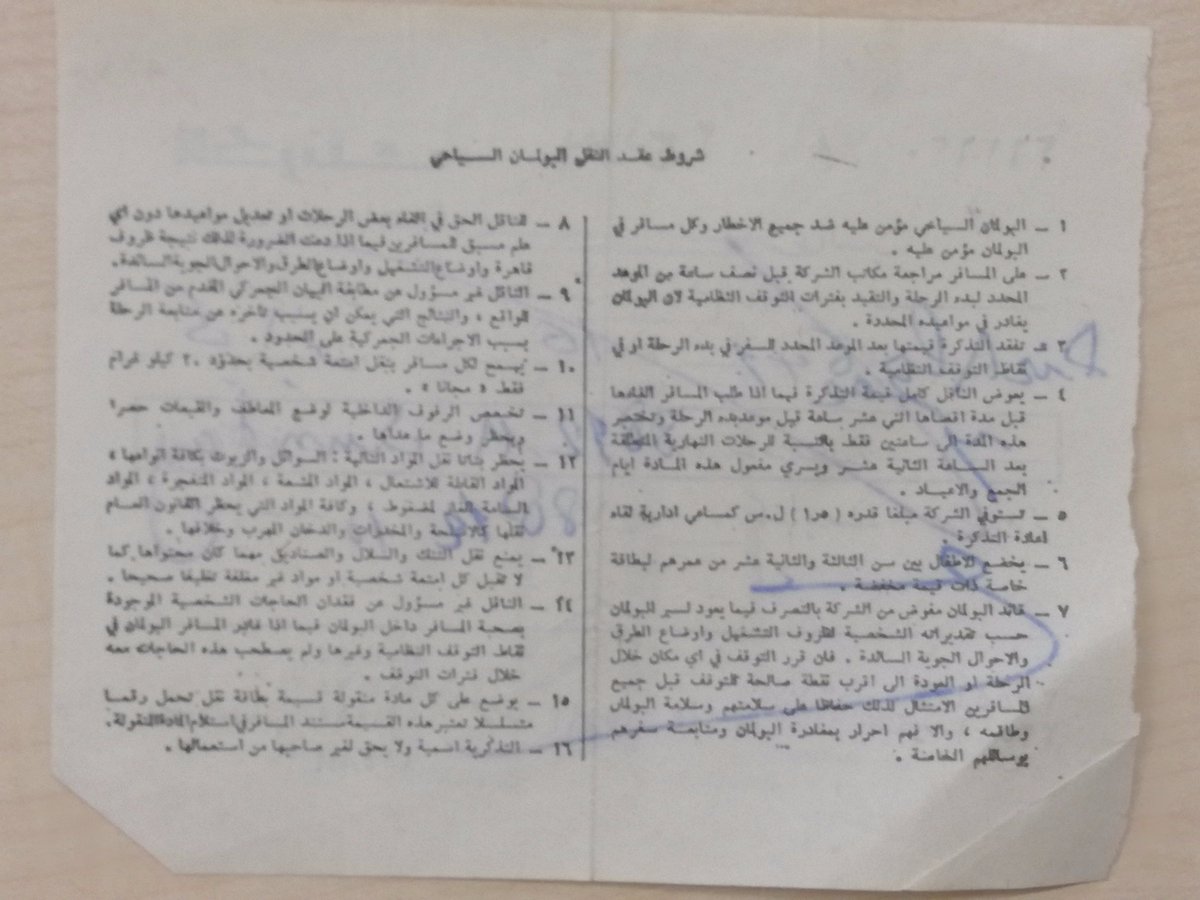 شروط عقد النقل البولمان السياحي
١ ـ البولمان السياحي مؤمن عليه ضد جميع الاخطار وكل مسافر في
البولمان مؤمن عليه .
٢ ـ على المسافر مراجعة مكاتب الشركة قبل نصف ساعة من الموعد
المحدد لبدء الرحلة والتقيد بفترات التوقف النظامية لان البولمان
يغادر في مواعيده المحددة .
٣ ـ تفقد التذكرة قيمتها بعد الموعد المحدد للسفر في بدء الرحلة او في
نقاط التوقف النظامية .
٤ ـ يعوض الناقل كامل قيمة التذكرة فيما اذا طلب المسافر الغاءها
قبل مدة اقصاها اثني عشر ساعة قبل موعد بدء الرحلة وتختصر
هذه المدة الى ساعتين فقط بالنسبة للرحلات النهارية المنطلقة
بعد الساعة الثانية عشر ويسري مفعول هذه المادة ايام
الجمع والاعياد .
٥ ـ تستوفي الشركة مبلغا قدره ( ١٫٥ ) ل.س كمساعي ادارية لقاء
اعادة التذكرة .
٦ ـ يخضع الاطفال بين سن الثالثة والثانية عشر من عمرهم لبطاقة
خاصة ذات قيمة مخفضة .
٧ ـ قائد البولمان مفوض من الشركة بالتصرف فيما يعود لسير البولمان
حسب تقديراته الشخصية لظروف التشغيل واوضاع الطرق
والاحوال الجوية السائدة . فان قرر التوقف في اي مكان خلال
الرحلة او العودة الى اقرب نقطة صالحة للتوقف قبل جميع
المسافرين الامتثال لذلك حفاظا على سلامتهم وسلامة البولمان
وطاقمه ، والا فهم احرار بمغادرة البولمان ومتابعة سفرهم
بوسائلهم الخاصة .
٨ ـ للناقل الحق في الغاء بعض الرحلات او تعديل مواعيدها دون اي
علم مسبق للمسافرين فيما اذا دعت الضرورة لذلك نتيجة ظروف
قاهرة واوضاع التشغيل واوضاع الطرق والاحوال الجوية السائدة.
٩ ـ الناقل غير مسؤول عن مطابقة البيان الجمركي المقدم من المسافر
للواقع ، والنتائج التي يمكن ان يسبب تأخره عن متابعة الرحلة
بسبب الاجراءات الجمركية على الحدود .
١٠ ـ يسمح لكل مسافر بنقل امتعة شخصية بحدود ٢٠ كيلو غرام
فقط « مجانا » .
١١ ـ تخصص الرفوف الداخلية لوضع المعاطف والقبعات حصرا
ويحظر وضع ما عداها .
١٢ ـ يحظر بتاتا نقل المواد التالية : السوائل والزيوت بكافة انواعها ،
المواد القابلة للاشتعال ، المواد المشعة ، المواد المتفجرة ، المواد
السامة الغاز المضغوط ، وكافة المواد التي يحظر القانون العام
نقلها كالاسلحة والمخدرات والدخان المهرب وخلافها .
١٣ ـ يمنع نقل التنك والسلال والصناديق مهما كان محتواها كما
لا تقبل كل امتعة شخصية او مواد غير مغلفة تغليفا صحيحا .
١٤ ـ الناقل غير مسؤول عن فقدان الحاجات الشخصية الموجودة
بصحبة المسافر داخل البولمان فيما اذا غادر المسافر البولمان في
نقاط التوقف النظامية وغيرها ولم يصطحب هذه الحاجات معه
خلال فترات التوقف .
١٥ ـ يوضع على كل مادة منقولة قسيمة بطاقة نقل تحمل رقما
متسلسلا تعتبر هذه القسيمة مستند المسافر في استلام المادة المنقولة.
١٦ ـ التذكرية اسمية ولا يحق لغير صاحبها من استعمالها .